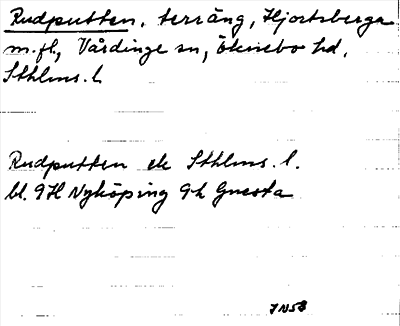 Rudputten, terräng, Hjortsberga
m.fl., Vårdinge sn, Öknebo hd,
Sthlms. l.
Rudputten ek Sthlms. l.
bl. 9H Nyköping 9h Gnesta
JN58